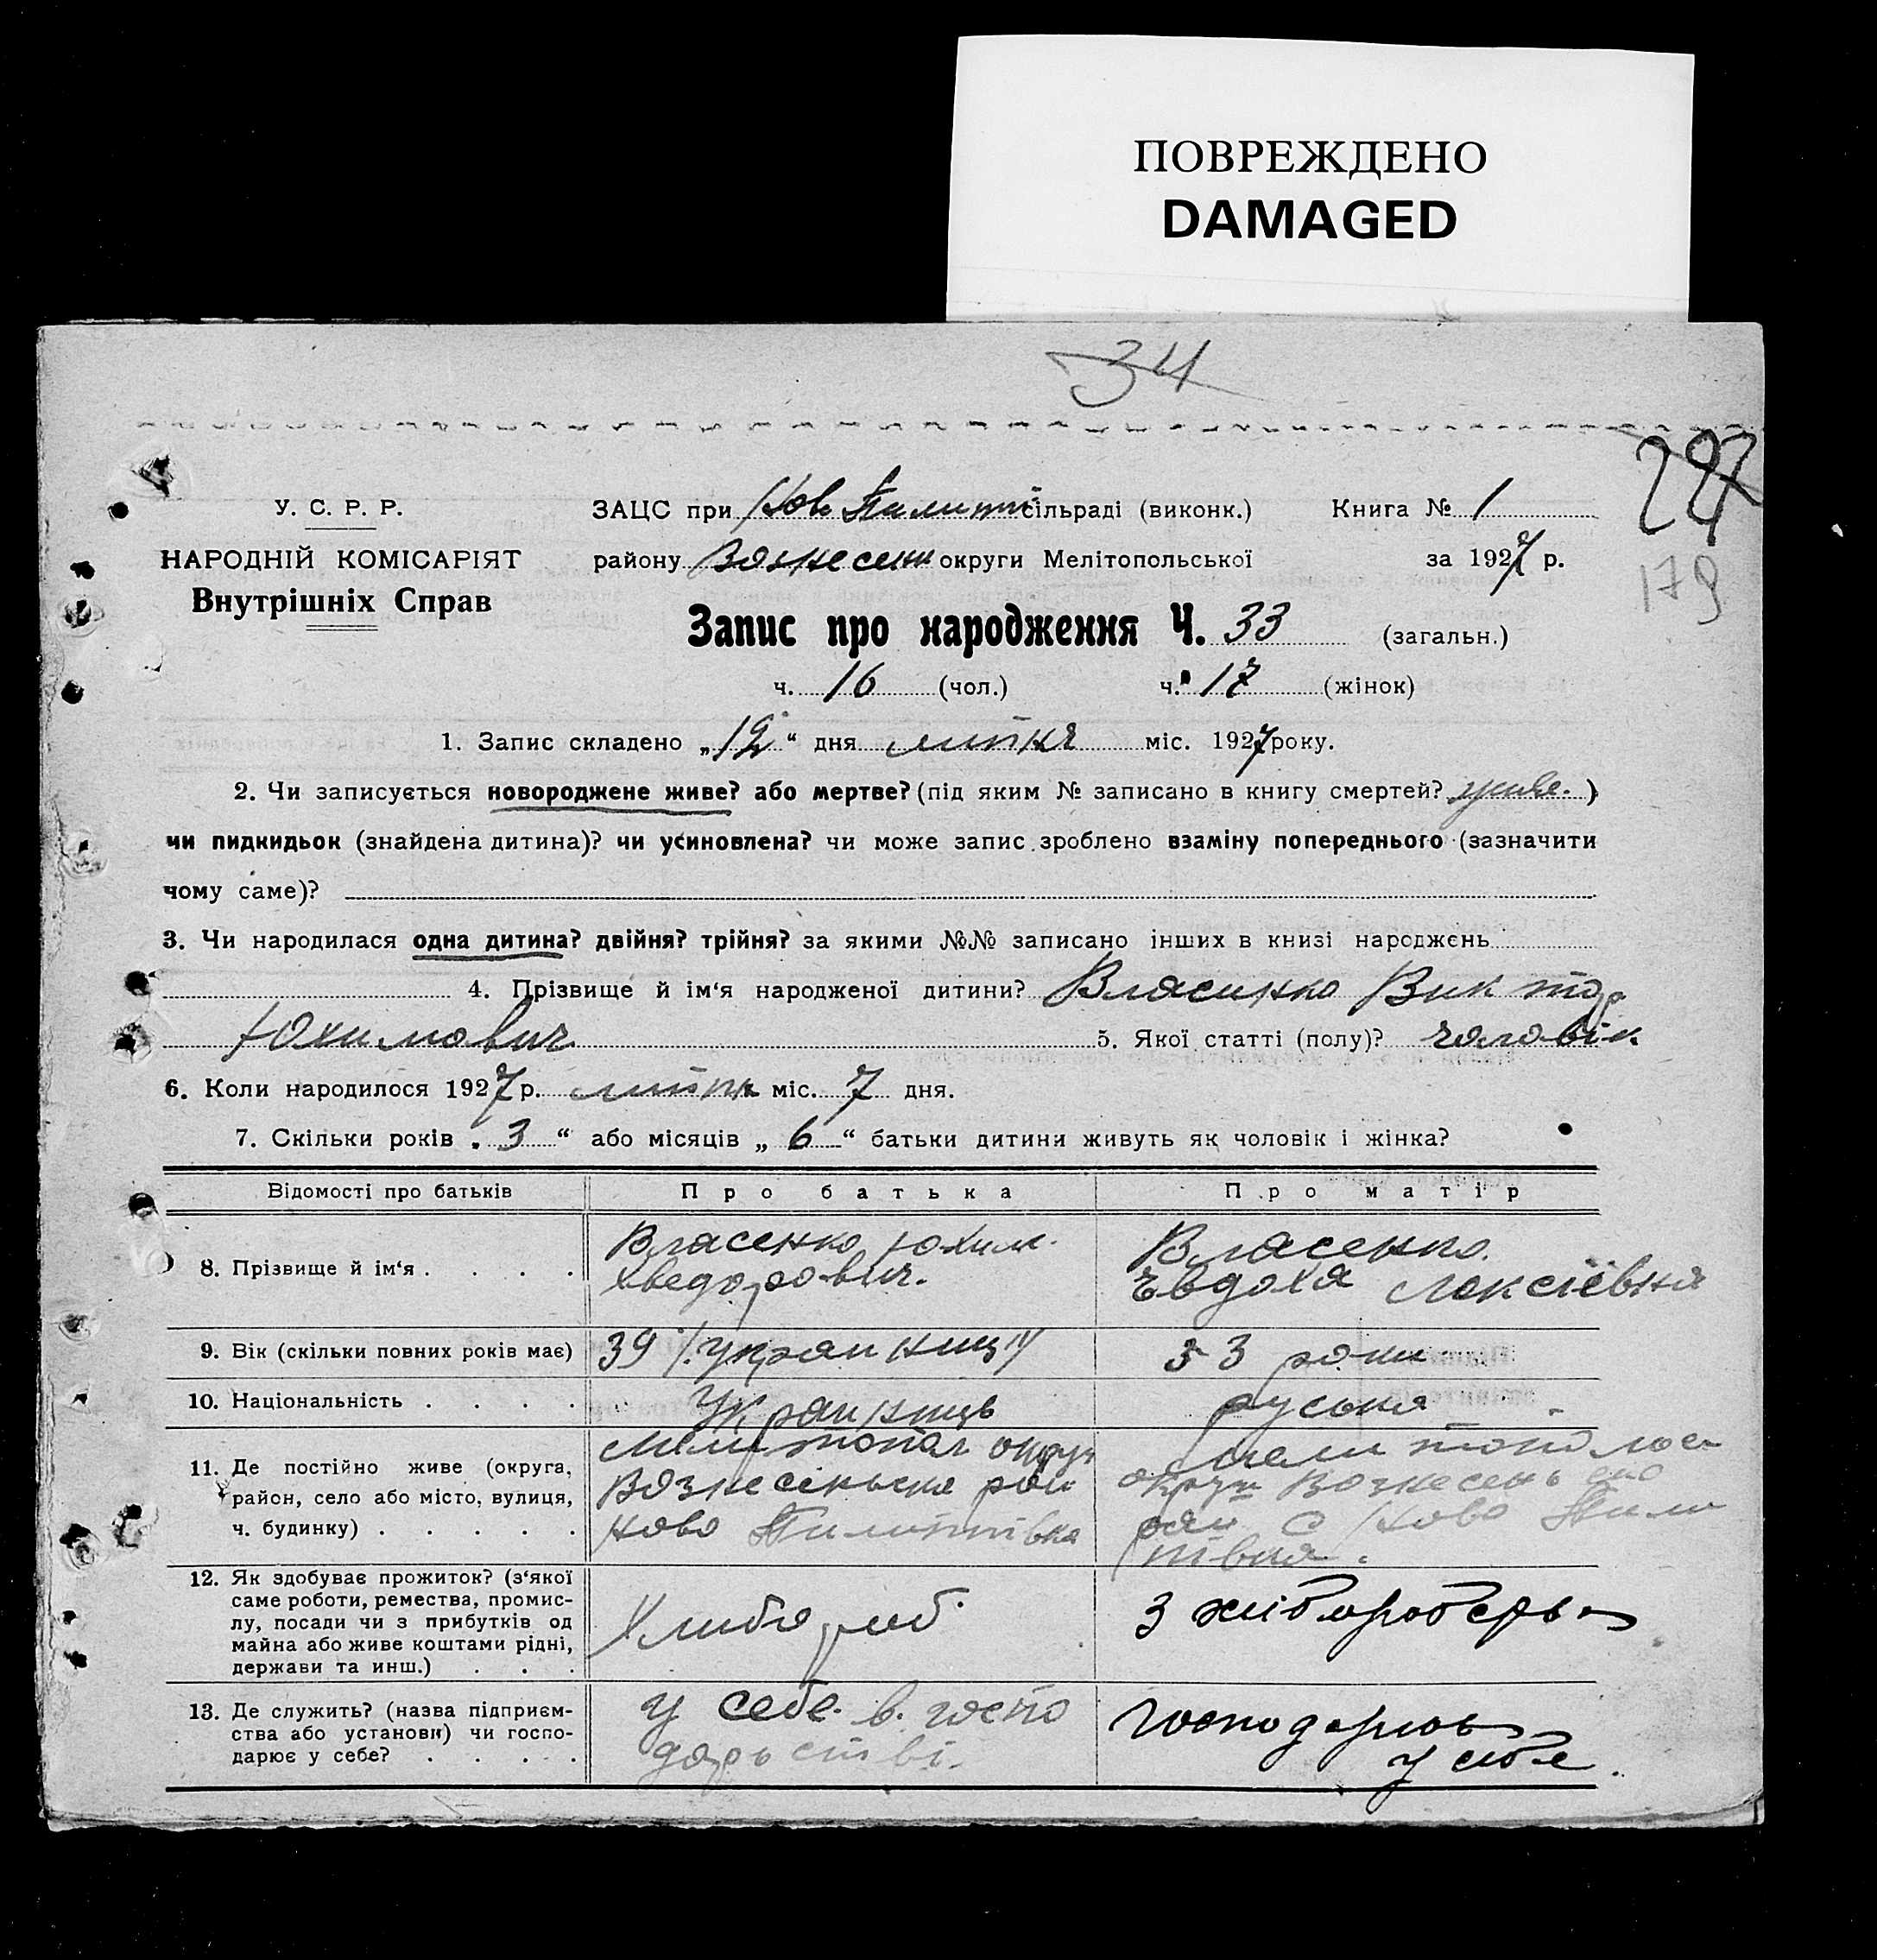 ПОВРЕЖДЕНО
DAMAGED
34
У. С. Р. Р.
НАРОДНІЙ КОМІСАРІЯТ
Внутрішніх Справ
ЗАЦС при Нов. сільраді (виконк.) Книга № 1
району Вознесенк округи Мелітопольської за 1927 р.
179
Запис про народження Ч. 33 (загальн.)
ч. 16 (чол.) ч. 17 (жінок)
1. Запис складено „12“ дня липня міс. 1927 року.
2. Чи записується новороджене живе? або мертве? (під яким № записано в книгу смертей? живе. )
чи пидкидьок (знайдена дитина)? чи усиновлена? чи може запис зроблено взаміну попереднього (зазначити
чому саме)?
3. Чи народилася одна дитина? двійня? трійня? за якими №№ записано інших в книзі народжень
4. Прізвище й ім‘я народженої дитини? Власенко Виктор
Юхимович 5. Якої статті (полу)? чоловік
6. Коли народилося 1927 р. липня міс. 7 дня.
7. Скільки років „ 3 “ або місяців „ 6 “ батьки дитини живуть як чоловік і жінка?
Відомості про батьків Про батька Про матір
8. Прізвище й ім‘я . . . . Власенко Юхим. Хведорович. Власенко. Євдохя Лексіёвня
9. Вік (скільки повних років має) 39 33 роки
10. Національність . . . . Украинищь руськя
11. Де постійно живе (округа,
район, село або місто, вулиця,
ч. будинку) . . . . .
Мелитопол округ
Вознесенська рай
Ново Пилипивка
Мелитопольс
округи Вознесенсько
рай с Ново Пили
пивкя.
12. Як здобуває прожиток? (з‘якої
саме роботи, ремества, промис-
лу, посади чи з прибутків од
майна або живе коштами рідні,
держави та инш.) . . .
Хлибороб.
З
13. Де служить? (назва підприєм-
ства або установи) чи госпо-
дарює у себе? . . . .
у себе. в. госпо
дарьстві.
Господарює
у себе.